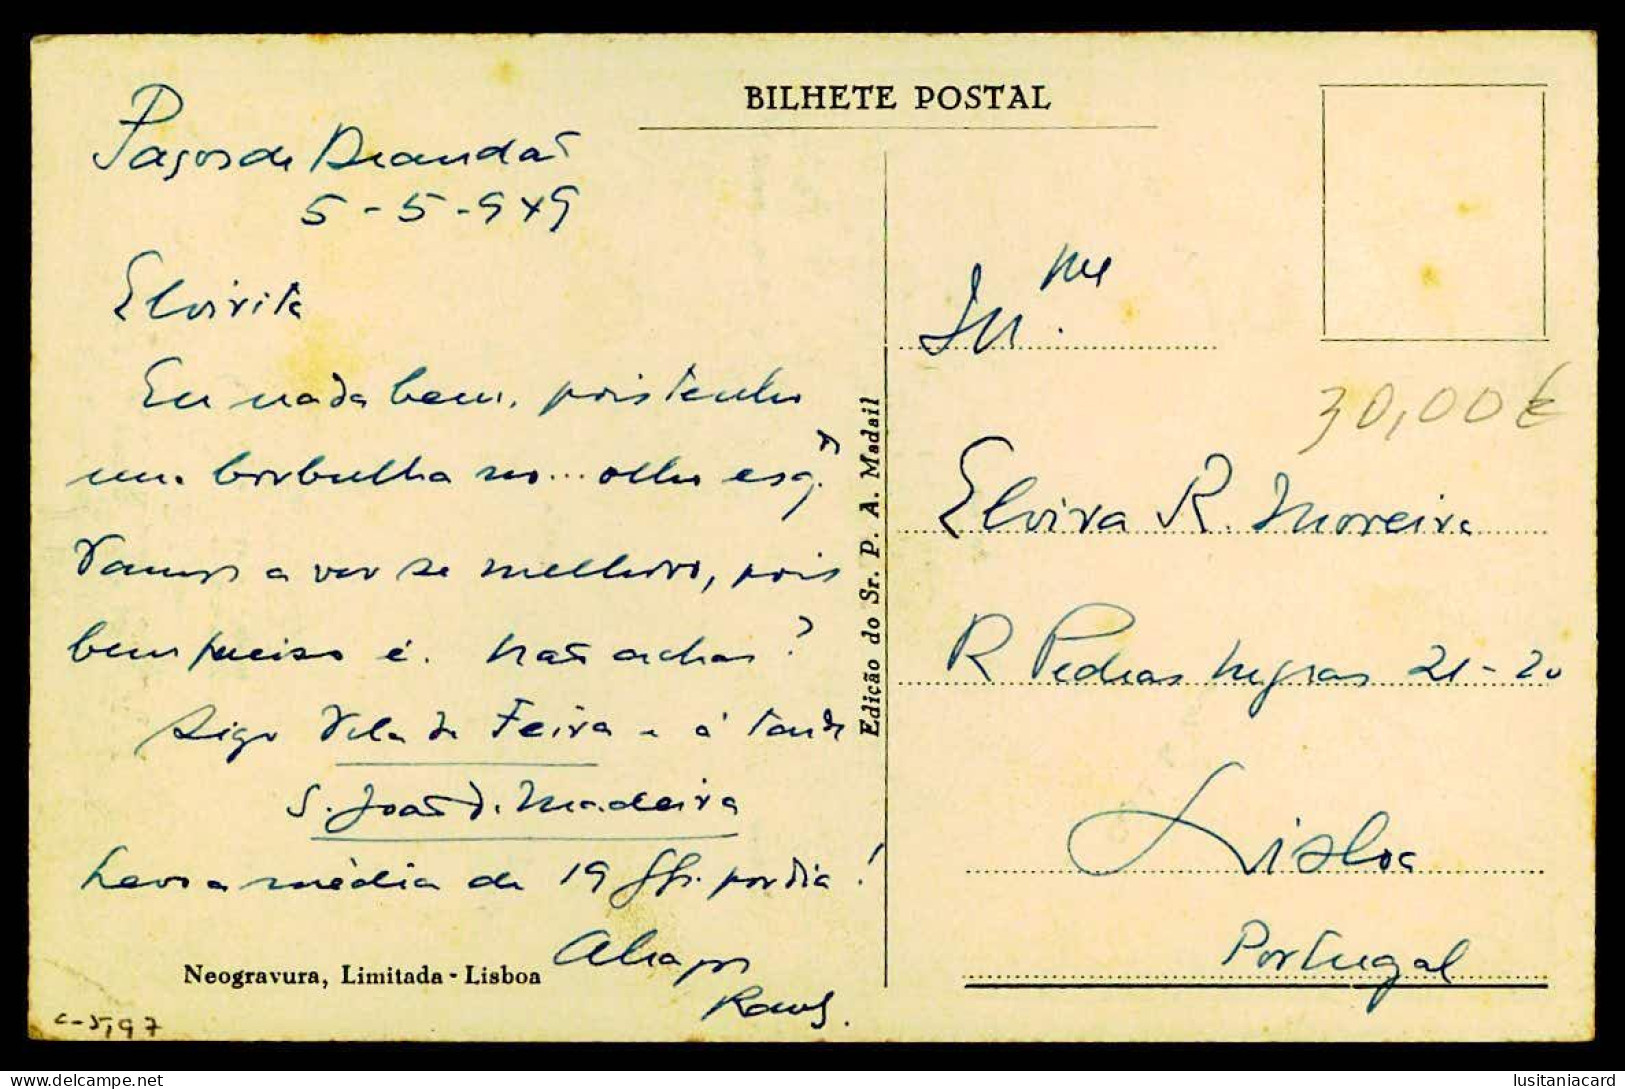 BILHETE POSTAL
Paços de Brandão
5-5-949
Elvirita
Eu nada bem, pois tenho
uma borbulha no... olho esq.
Vamos a ver se melhoro, pois
bem preciso é. Não achas?
Sigo Vila da Feira e à tarde
S. João d. Madeira
Levo a média de 19 por dia!
Abraços
Raul.
Neogravura, Limitada - Lisboa
Edição do Sr. P. A. Madail
Elvira R. Moreira
R Pedras Negras 21-2o
Lisboa
Portugal
30,00€
c-5,97
lusitaniacard